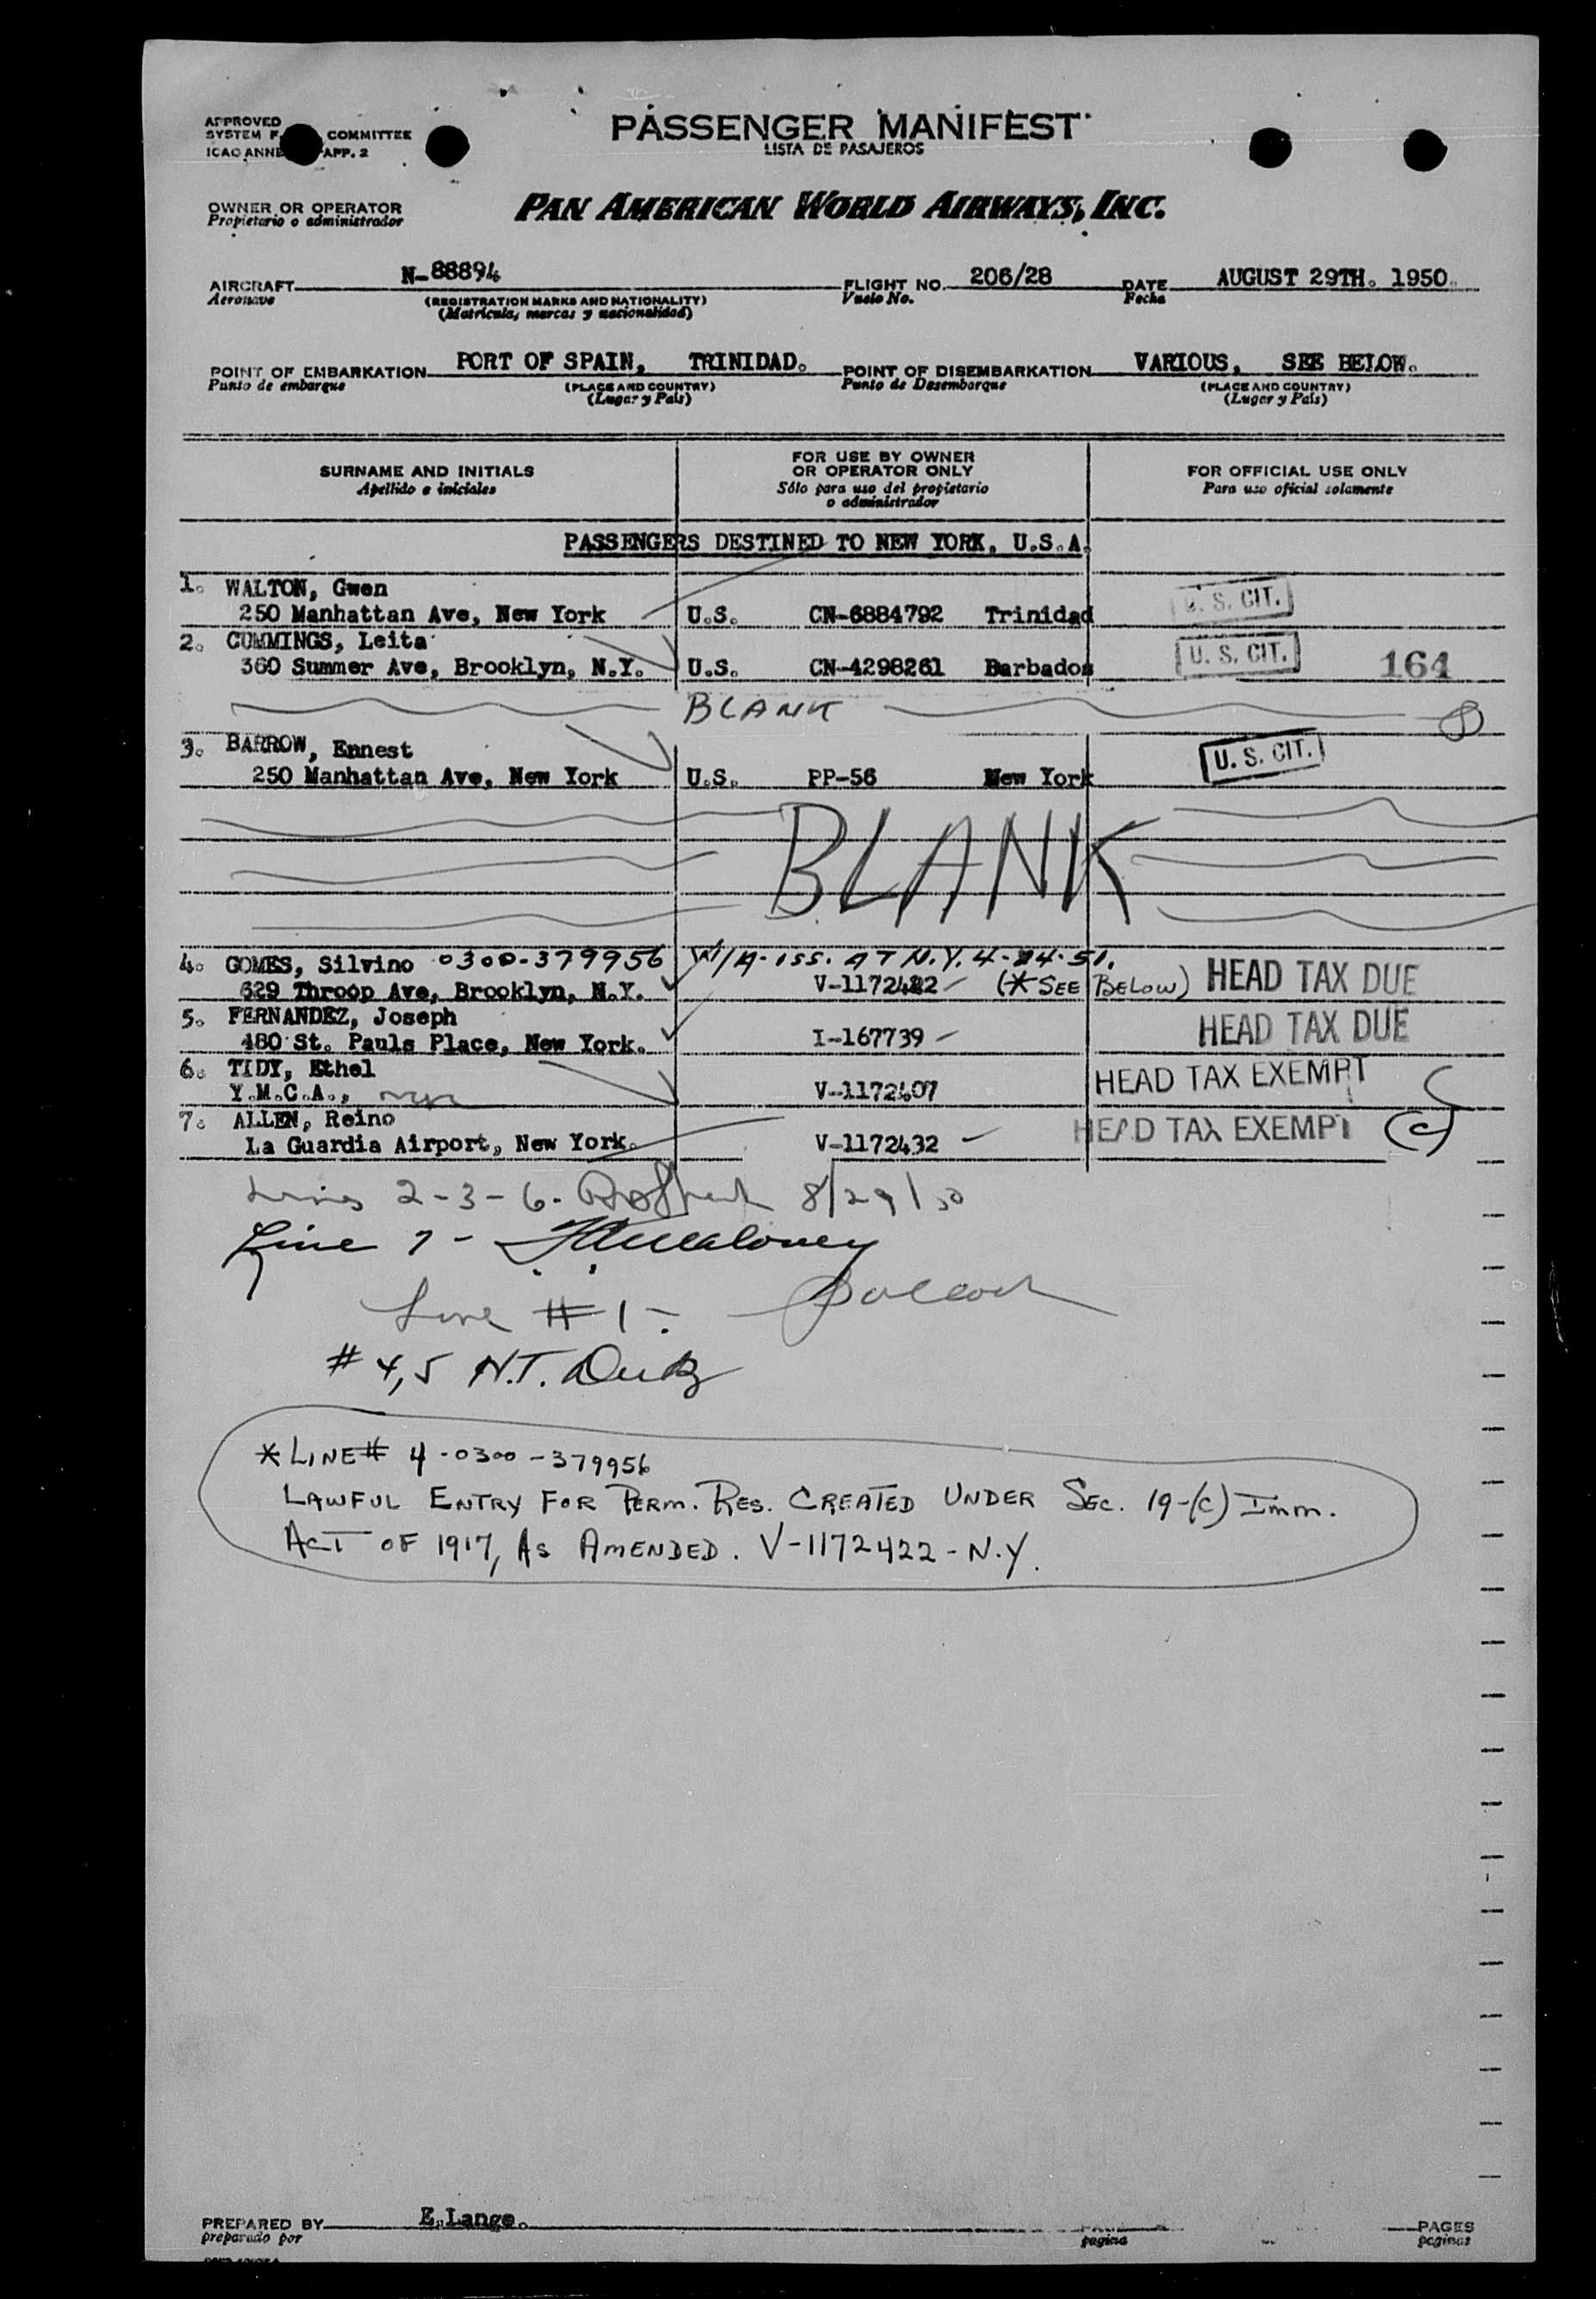 APPROVED
SYSTEM F. COMMITTEE
ICAO ANNE APP. 2
PASSENGER MANIFEST
LISTA DE PASAJEROS
OWNER OR OPERATOR
Propietario o administrador
PAN AMERICAN WORLD AIRWAYS, INC.
AIRCRAFT N-88894 FLIGHT NO. 206/28 DATE AUGUST 29TH. 1950.
Aeronave (REGISTRATION MARKS AND NATIONALITY) Vuelo No. Fecha
(Matrícula, marcas y nacionalidad)
POINT OF EMBARKATION PORT OF SPAIN, TRINIDAD. POINT OF DISEMBARKATION VARIOUS, SEE BELOW.
Punto de embarque (PLACE AND COUNTRY) Punto de Desembarque (PLACE AND COUNTRY)
(Lugar y País) (Lugar y País)
SURNAME AND INITIALS FOR USE BY OWNER OR OPERATOR ONLY FOR OFFICIAL USE ONLY
Apellido e iniciales Sólo para uso del propietario o administrador Para uso oficial solamente
PASSENGERS DESTINED TO NEW YORK, U.S.A.
1. WALTON, Gwen
250 Manhattan Ave, New York U.S. CN-6884792 Trinidad U. S. CIT.
2. CUMMINGS, Leita
360 Summer Ave, Brooklyn, N.Y. U.S. CN-4298261 Barbados U. S. CIT. 164
BLANK
3. BARROW, Ennest
250 Manhattan Ave, New York U.S. PP-56 New York U. S. CIT.
BLANK
4. GOMES, Silvino 0300-379956 W/A-ISS. AT N.Y. 4-24-51.
629 Throop Ave, Brooklyn, N.Y. V-1172422 (*SEE BELOW) HEAD TAX DUE
5. FERNANDEZ, Joseph
480 St. Pauls Place, New York. I-167739 HEAD TAX DUE
6. TIDY, Ethel
Y.M.C.A., V-1172407 HEAD TAX EXEMPT
7. ALLEN, Reino
La Guardia Airport, New York. V-1172432 HEAD TAX EXEMPT (C)
Lines 2-3-6. 8/29/50
Line 7 - Maloney
Line #1-
#4,5 N.T.
*LINE# 4-0300-379956
LAWFUL ENTRY FOR PERM. RES. CREATED UNDER SEC. 19-(C) IMM.
ACT OF 1917, AS AMENDED. V-1172422-N.Y.
PREPARED BY E.Lange. PAGES
preparado por pagina paginas